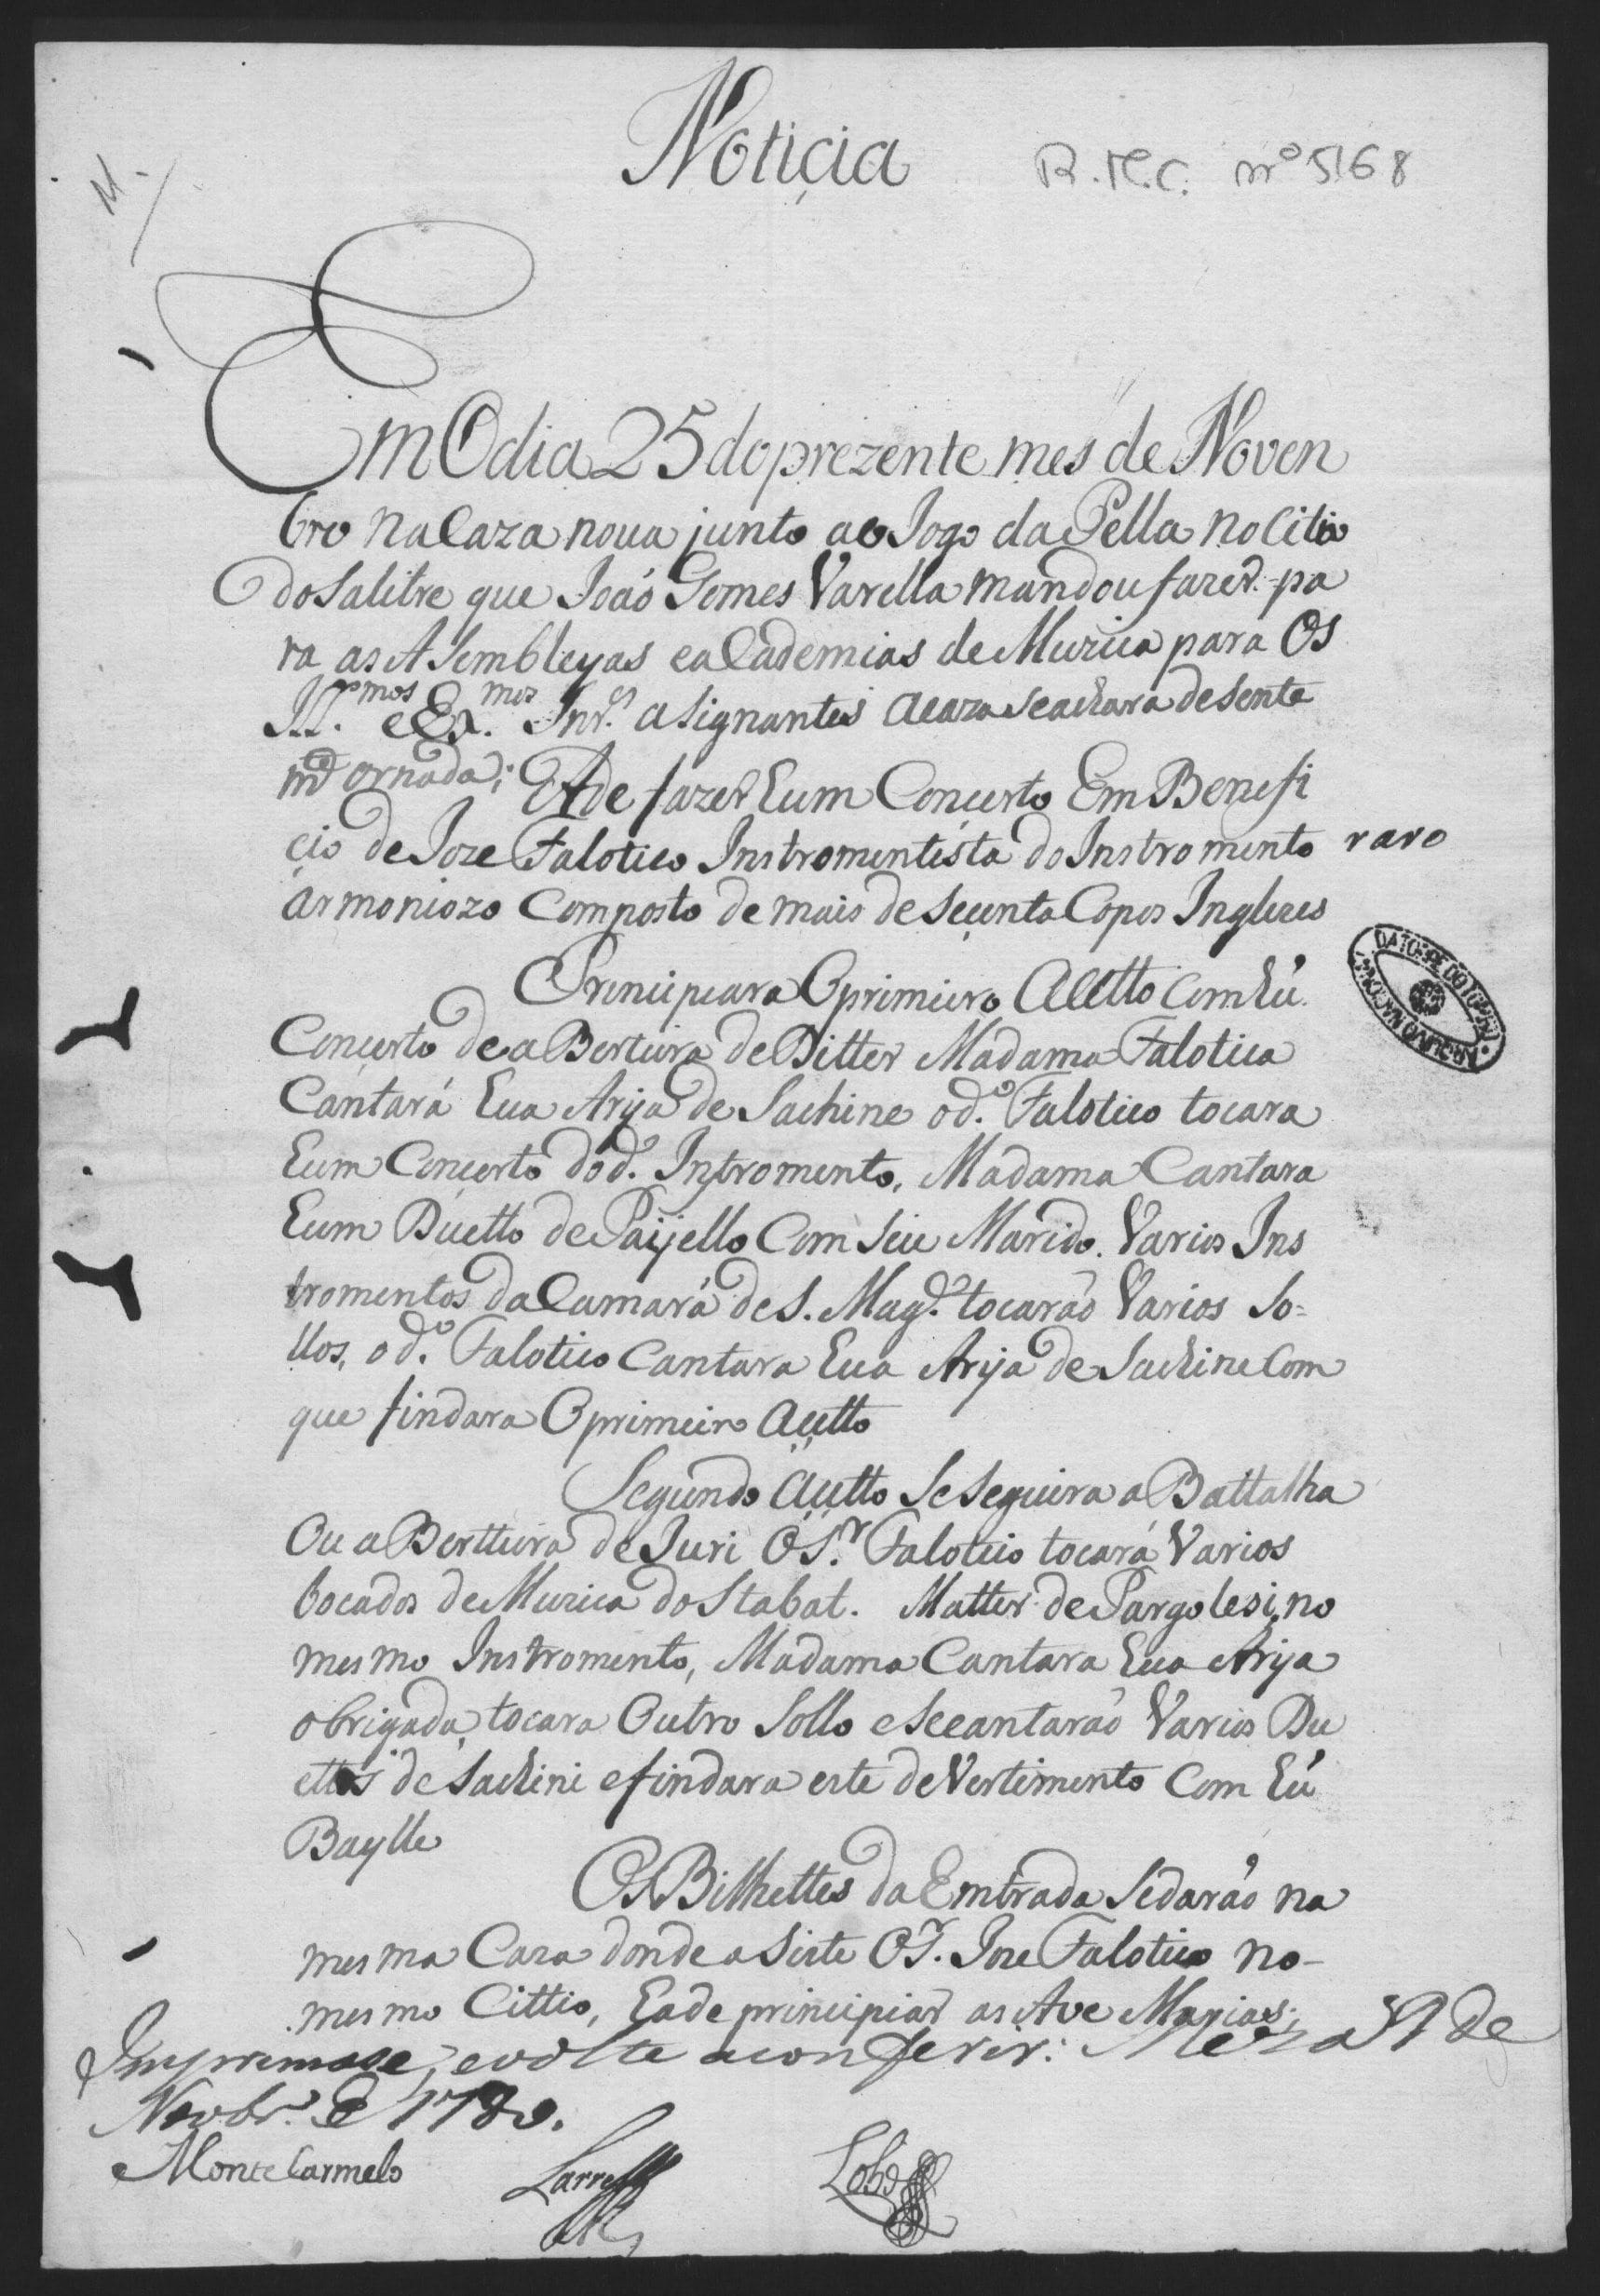 Noticia
R.M.C. nº 5168
Em O dia 25 do prezente mes de Noven
bro na Caza noua junto ao Jogo da Pella no Citio
do Salitre que Joaó Gomes Varella mandou fazer pa
ra as ASembleyas e aCademias de Muzica para Os
Ill.mos e Ex.mos Snr.es aSignantes a Caza Se achara desente
m.te ornada; E Ade fazer Eum Concerto Em Benefi
çio de Joze Falotico Instromentista do Instromento raro
armoniozo Composto de mais de Seçenta Copos Inglezes
Principeara O primeiro Aectto Com Eú
Conçerto de aBertura de Ditter Madama Falotica
Cantará Eua Arija de Sachine o d.º Falotico tocara
Eum Concerto do d. Instromento, Madama Cantara
Eum Duetto de Paijello Com Seu Marido. Varios Ins
tromentos da Camará de S. Mag.de tocaraó Varios So=
llos, o d.º Falotico Cantara Eua Arija de Sachine Com
que findara O primeiro Auçtto
Segundo Auctto Se Seguira a Battalha
Ou aBerttura de Juri O S.r Falotico tocará Varios
bocados de Muzica do Stabat. Matter de Pargolesi, no
mesmo Instromento, Madama Cantara Eua Arija
obrigada, tocara Outro Sollo e Se cantaraó Varios Du
ettos de Sachini e findara este deVertimento Com Eú
Baylle
Os Bilhettes da Emtrada Se daraó na
mesma Caza donde aSiste O S.r Joze Falotico no-
mesmo Cittio, Eade principiar as Ave Marias;
Imprimase, e volte a conferir: Meza 9 de
Novbr.º de 1780.
Monte Carmelo
Lobo
ARQUIVO NACIONAL DA TORRE DO TOMBO